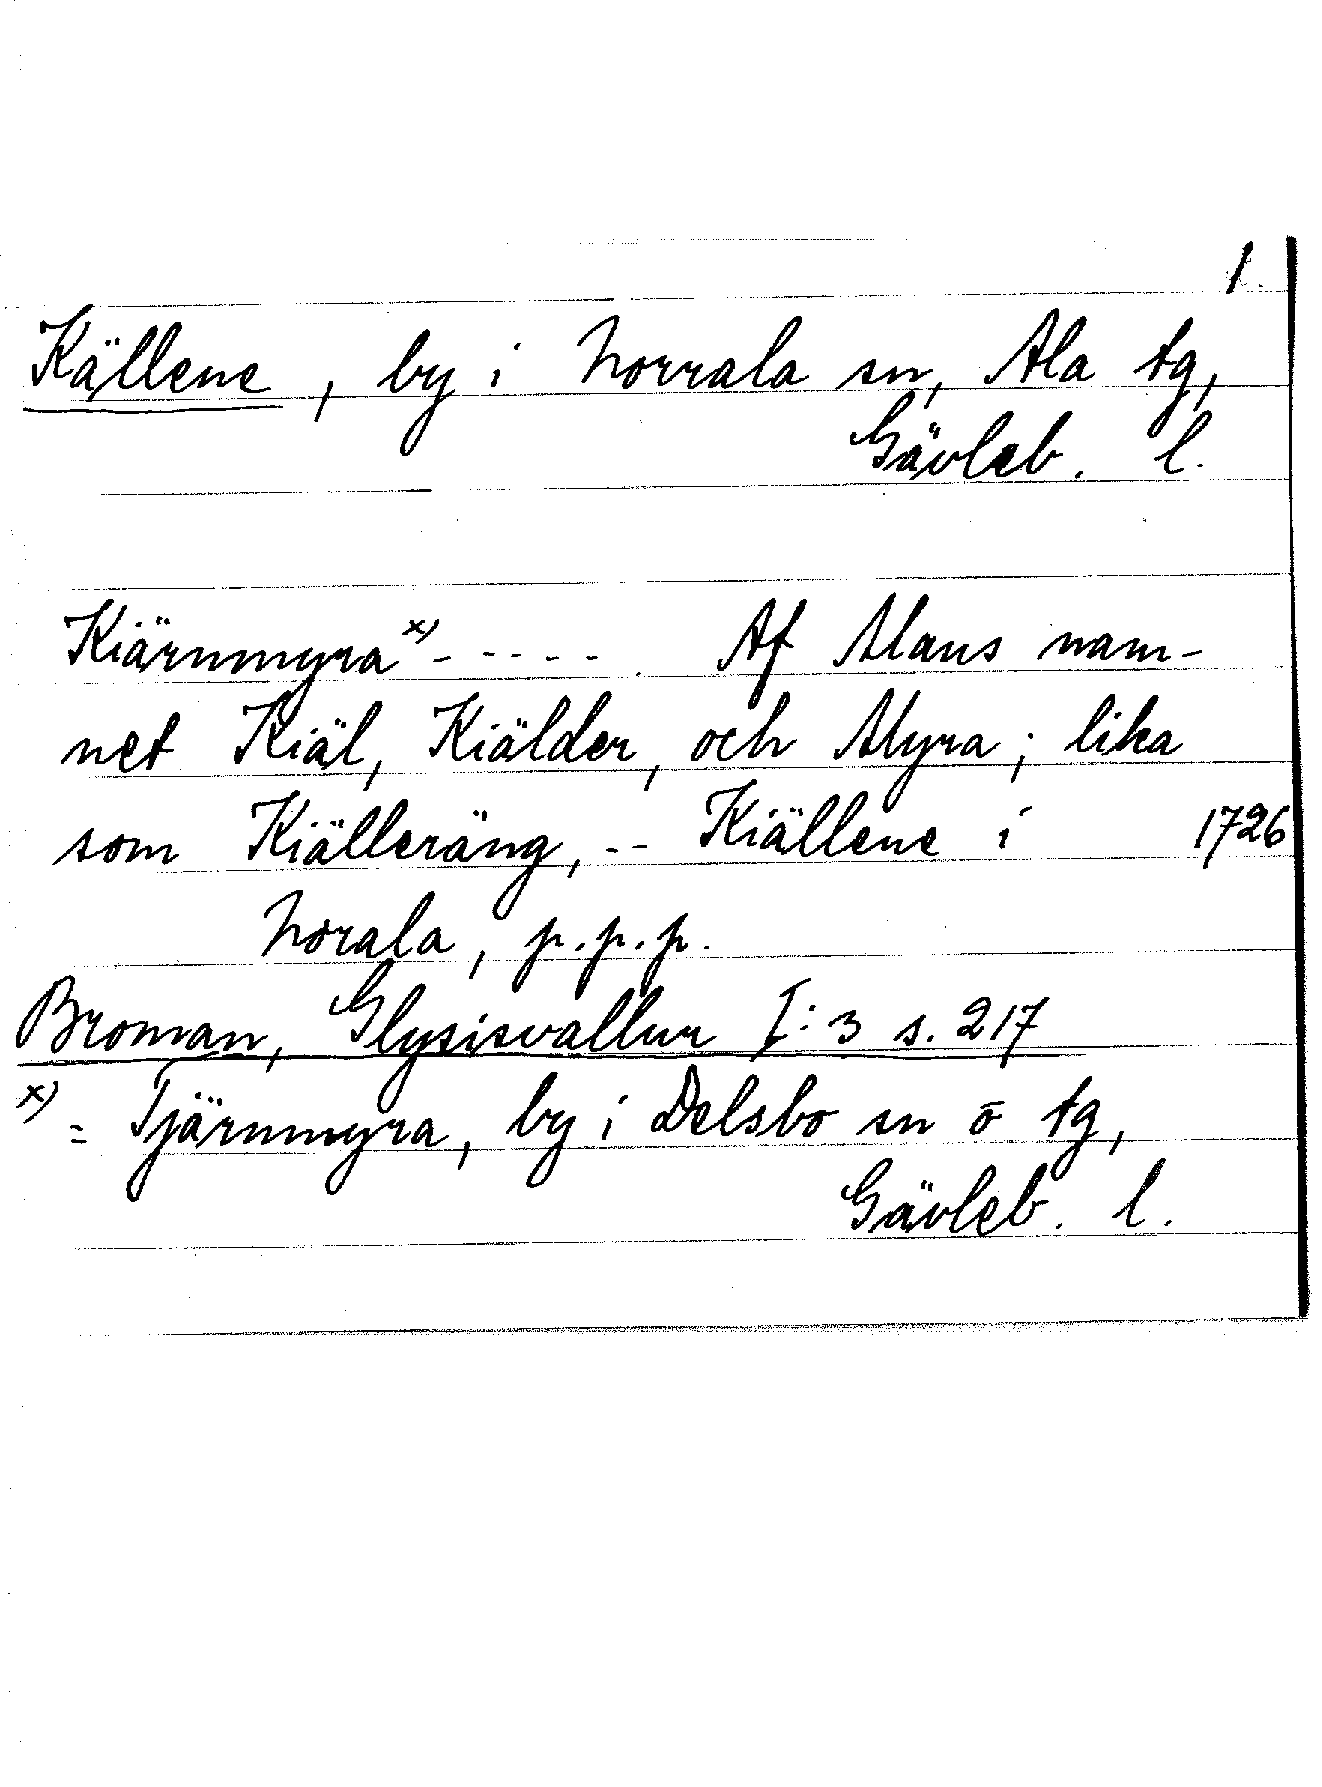 1.
Källene, by i Norrala sn, Ala tg,
Gävleb. l.
Kiärnmyra x) - - - - - . Af Mans nam-
net Kiäl, Kiälder, och Myra; lika
som Kiälleräng, -- Kiällene i 1726
Norala, p.p.p.
Broman, Glysisvallur I:3 s. 217
x) = Tjärnmyra, by i Delsbo sn o tg,
Gävleb. l.